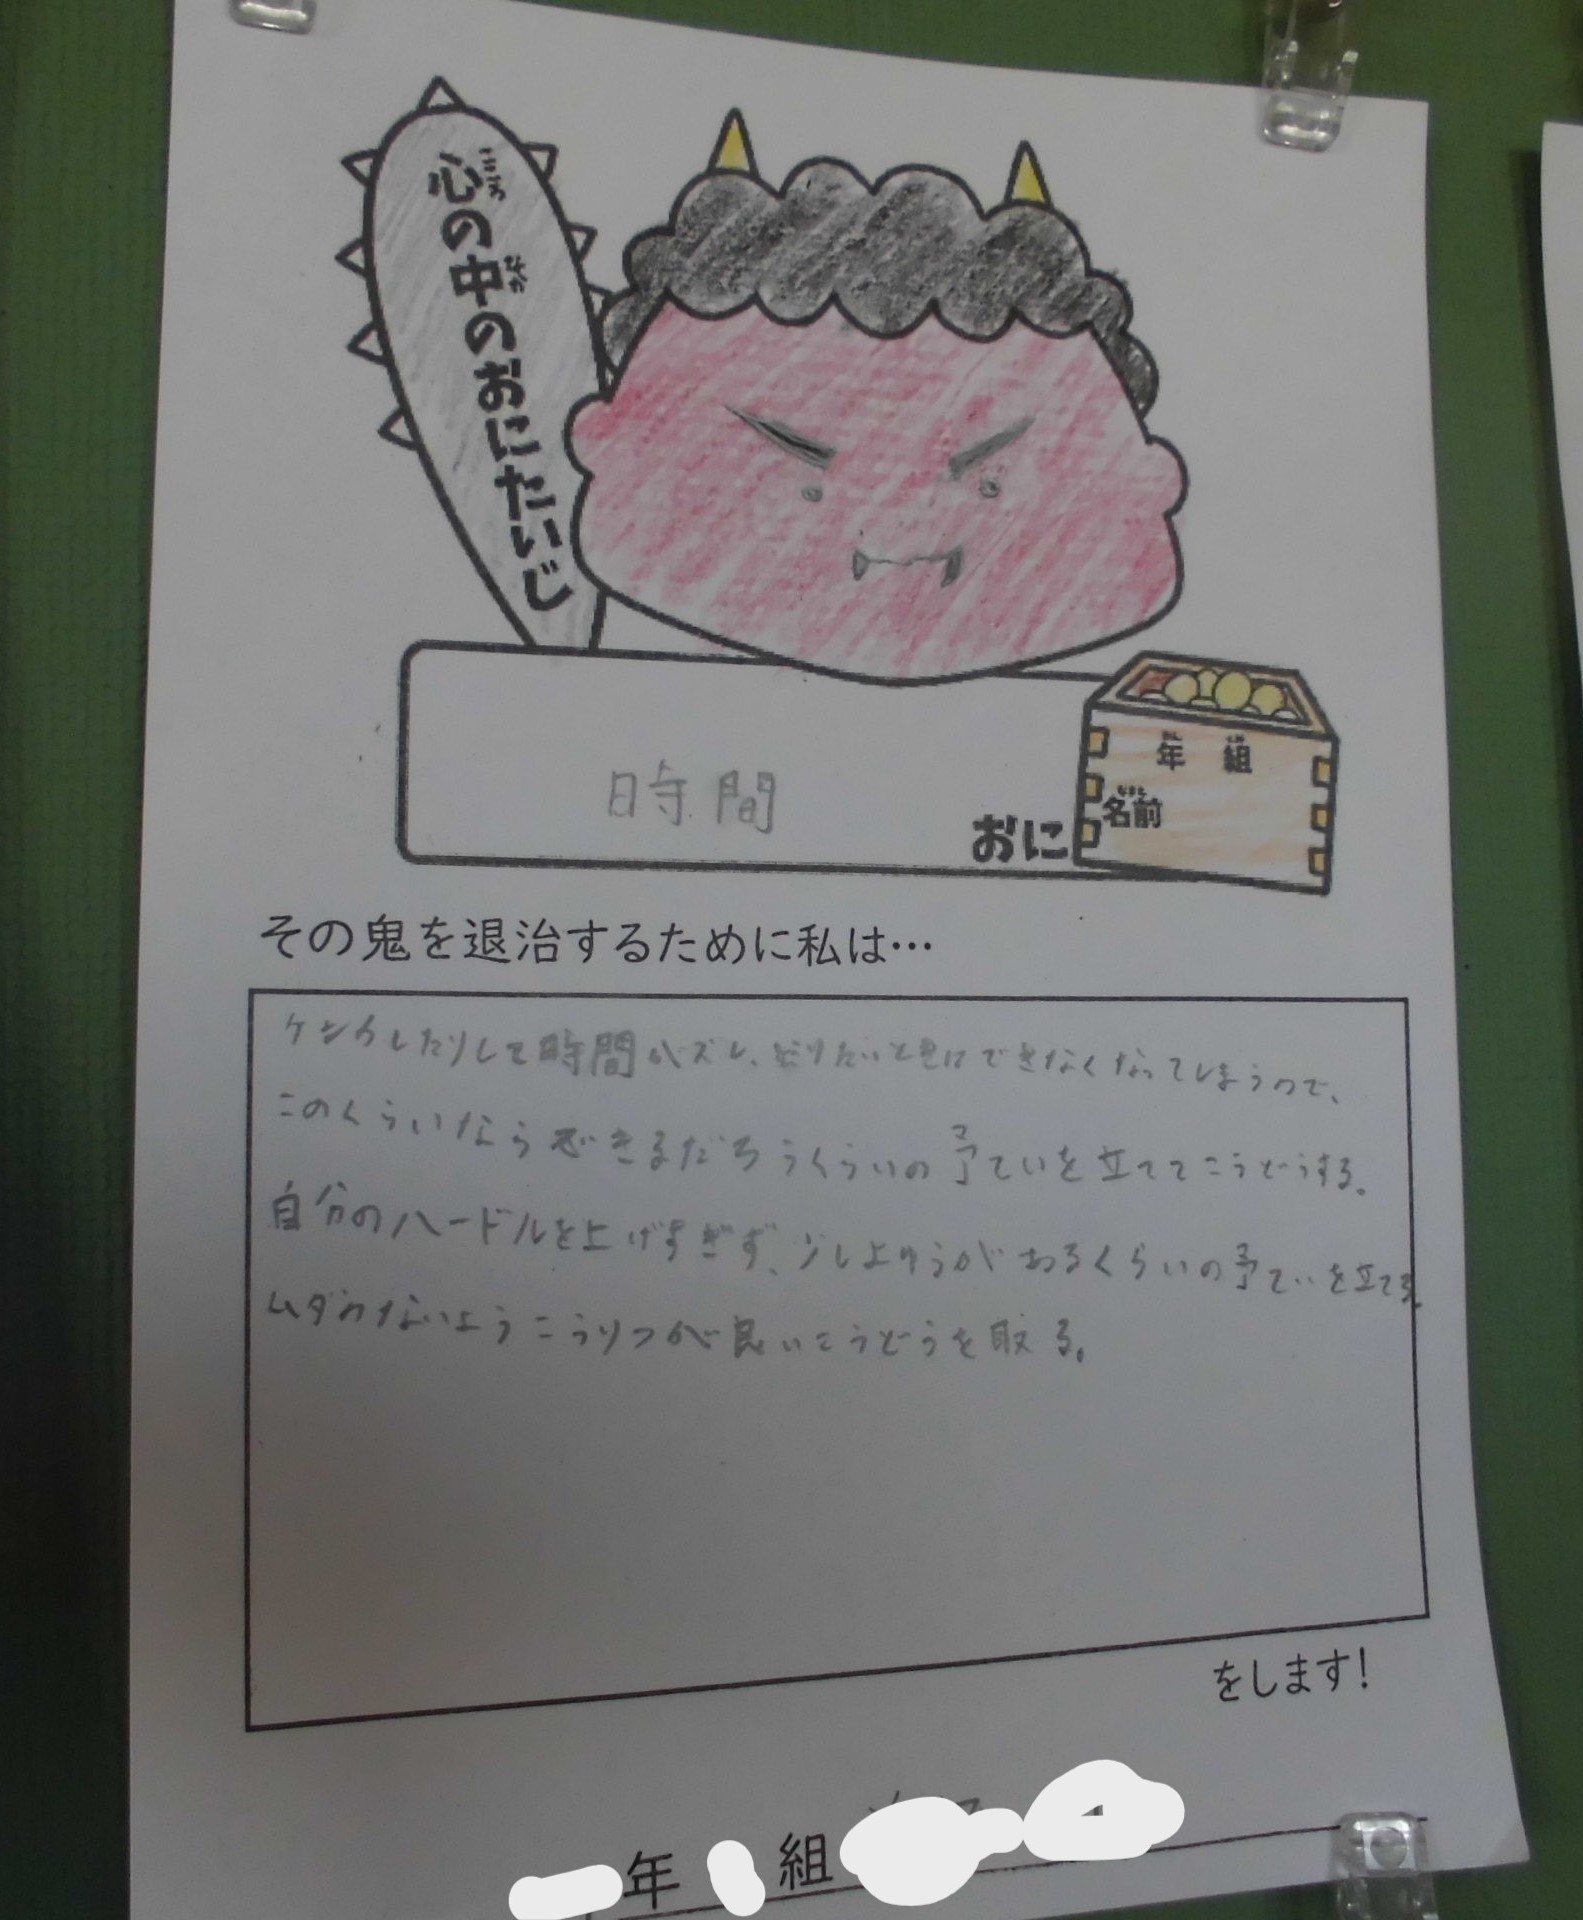 心の中のおにたいじ
こころ
なか
時間
おに
年 組
ねん くみ
名前
なまえ
その鬼を退治するために私は…
ケンカしたりして時間がズレ、やりたいと色にできなくなってしまうので、
このくらいならできるだろうくらいの予ていを立ててこうどうする。
自分のハードルを上げすぎず、少しよゆうがあるくらいの予ていを立てる。
ムダのないようこうりつが良いこうどうを取る。
をします!
年 組